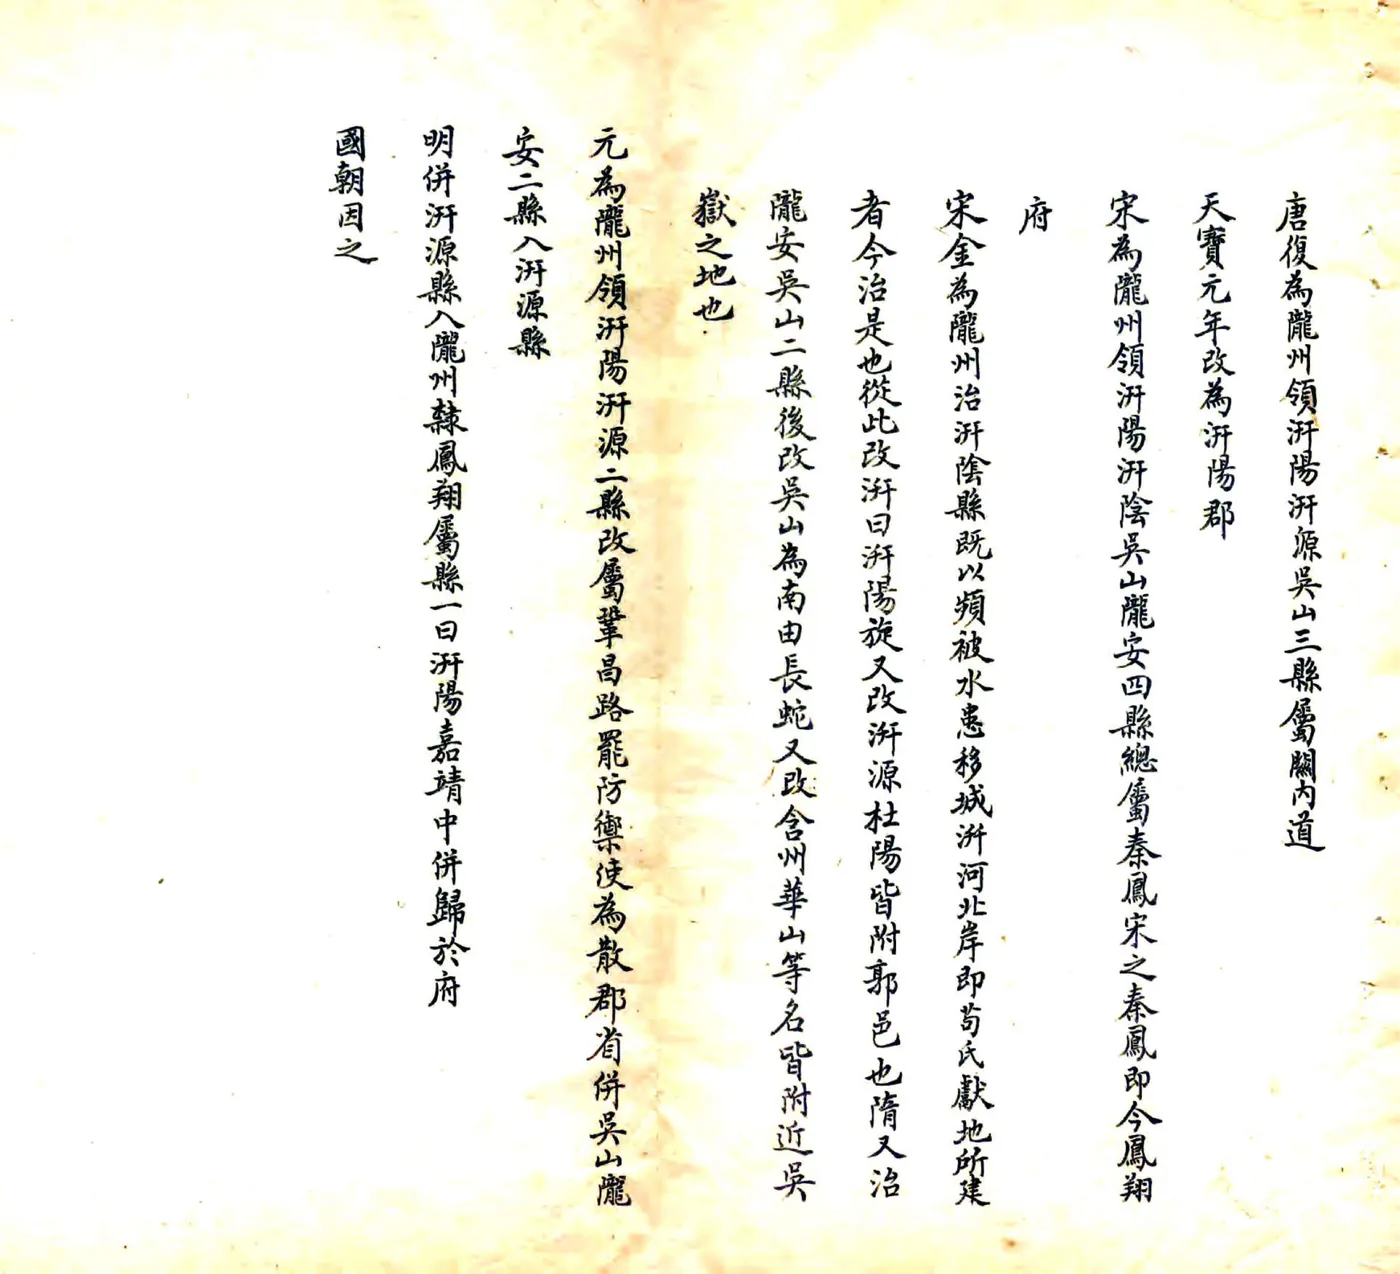 唐復為隴州領汧陽汧源吳山三縣屬關內道
天寶元年改為汧陽郡
宋為隴州領汧陽汧陰吳山隴安四縣總屬秦鳳宋之秦鳳即今鳳翔
府
宋金為隴州治汧陰縣既以頻被水患移城汧河北岸即苟氏獻地所建
者今治是也從此改汧曰汧陽旋又改汧源杜陽皆附郭邑也隋又治
隴安吳山二縣後改吳山為南由長蛇又改含州華山等名皆附近吳
嶽之地也
元為隴州領汧陽汧源二縣改屬鞏昌路罷防禦使為散郡省併吳山隴
安二縣入汧源縣
明併汧源縣入隴州隸鳳翔屬縣一曰汧陽嘉靖中併歸於府
國朝因之